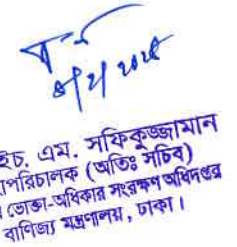 ইচ. এম. সফিকুজ্জামান
াপরিচালক (অতিঃ সচিব)
ভোক্তা-অধিকার সংরক্ষণ অধিদপ্তর
বাণিজ্য মন্ত্রণালয়, ঢাকা।